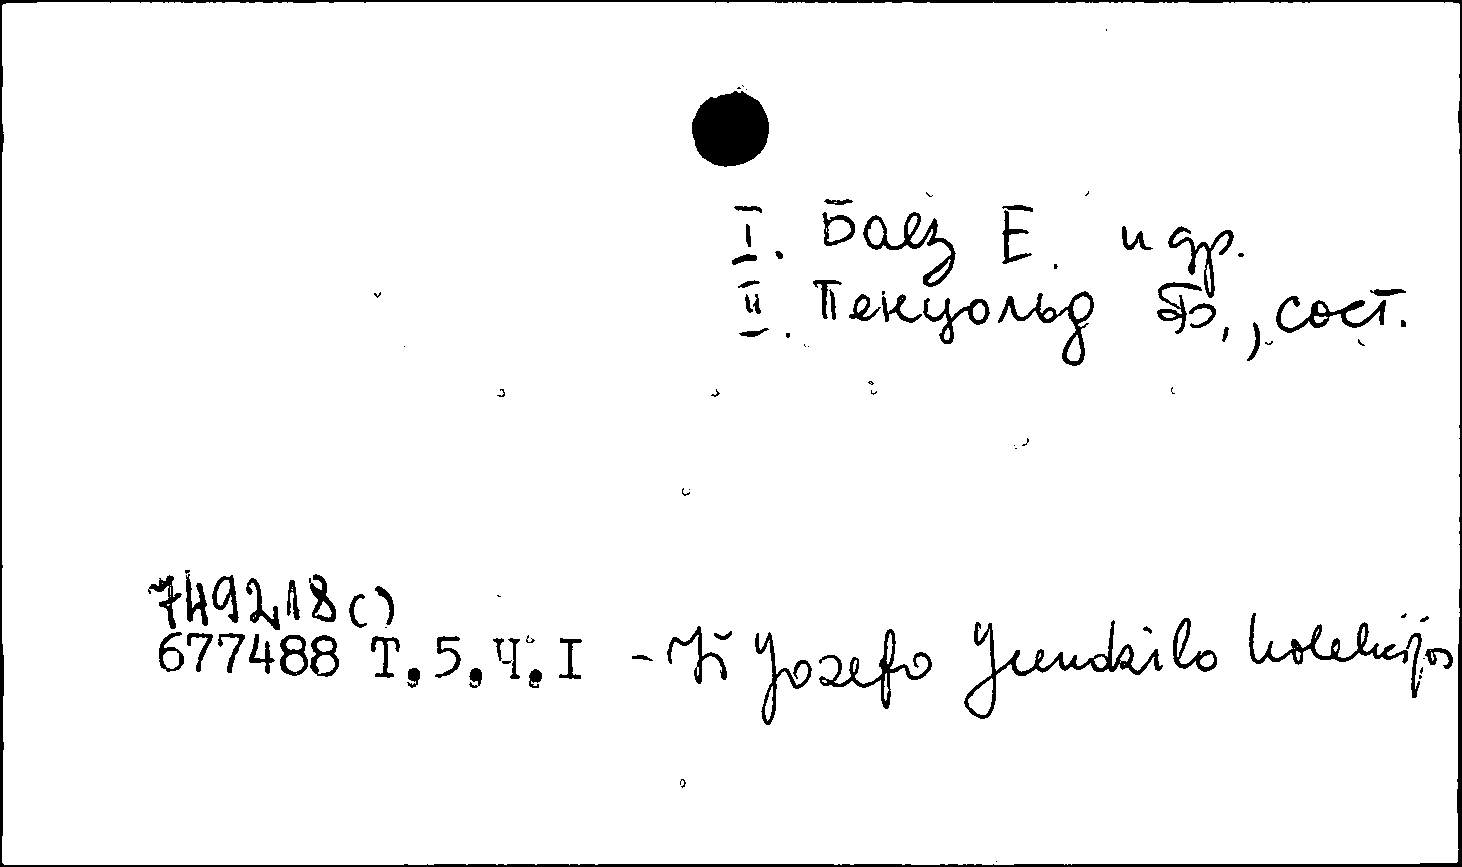 I. Баез Е. и др.
II. Пенцольд Ф., сост.
749218()
677488 Т.5.Ч.I - Iš Jozefo Jundzilo kolekcijos